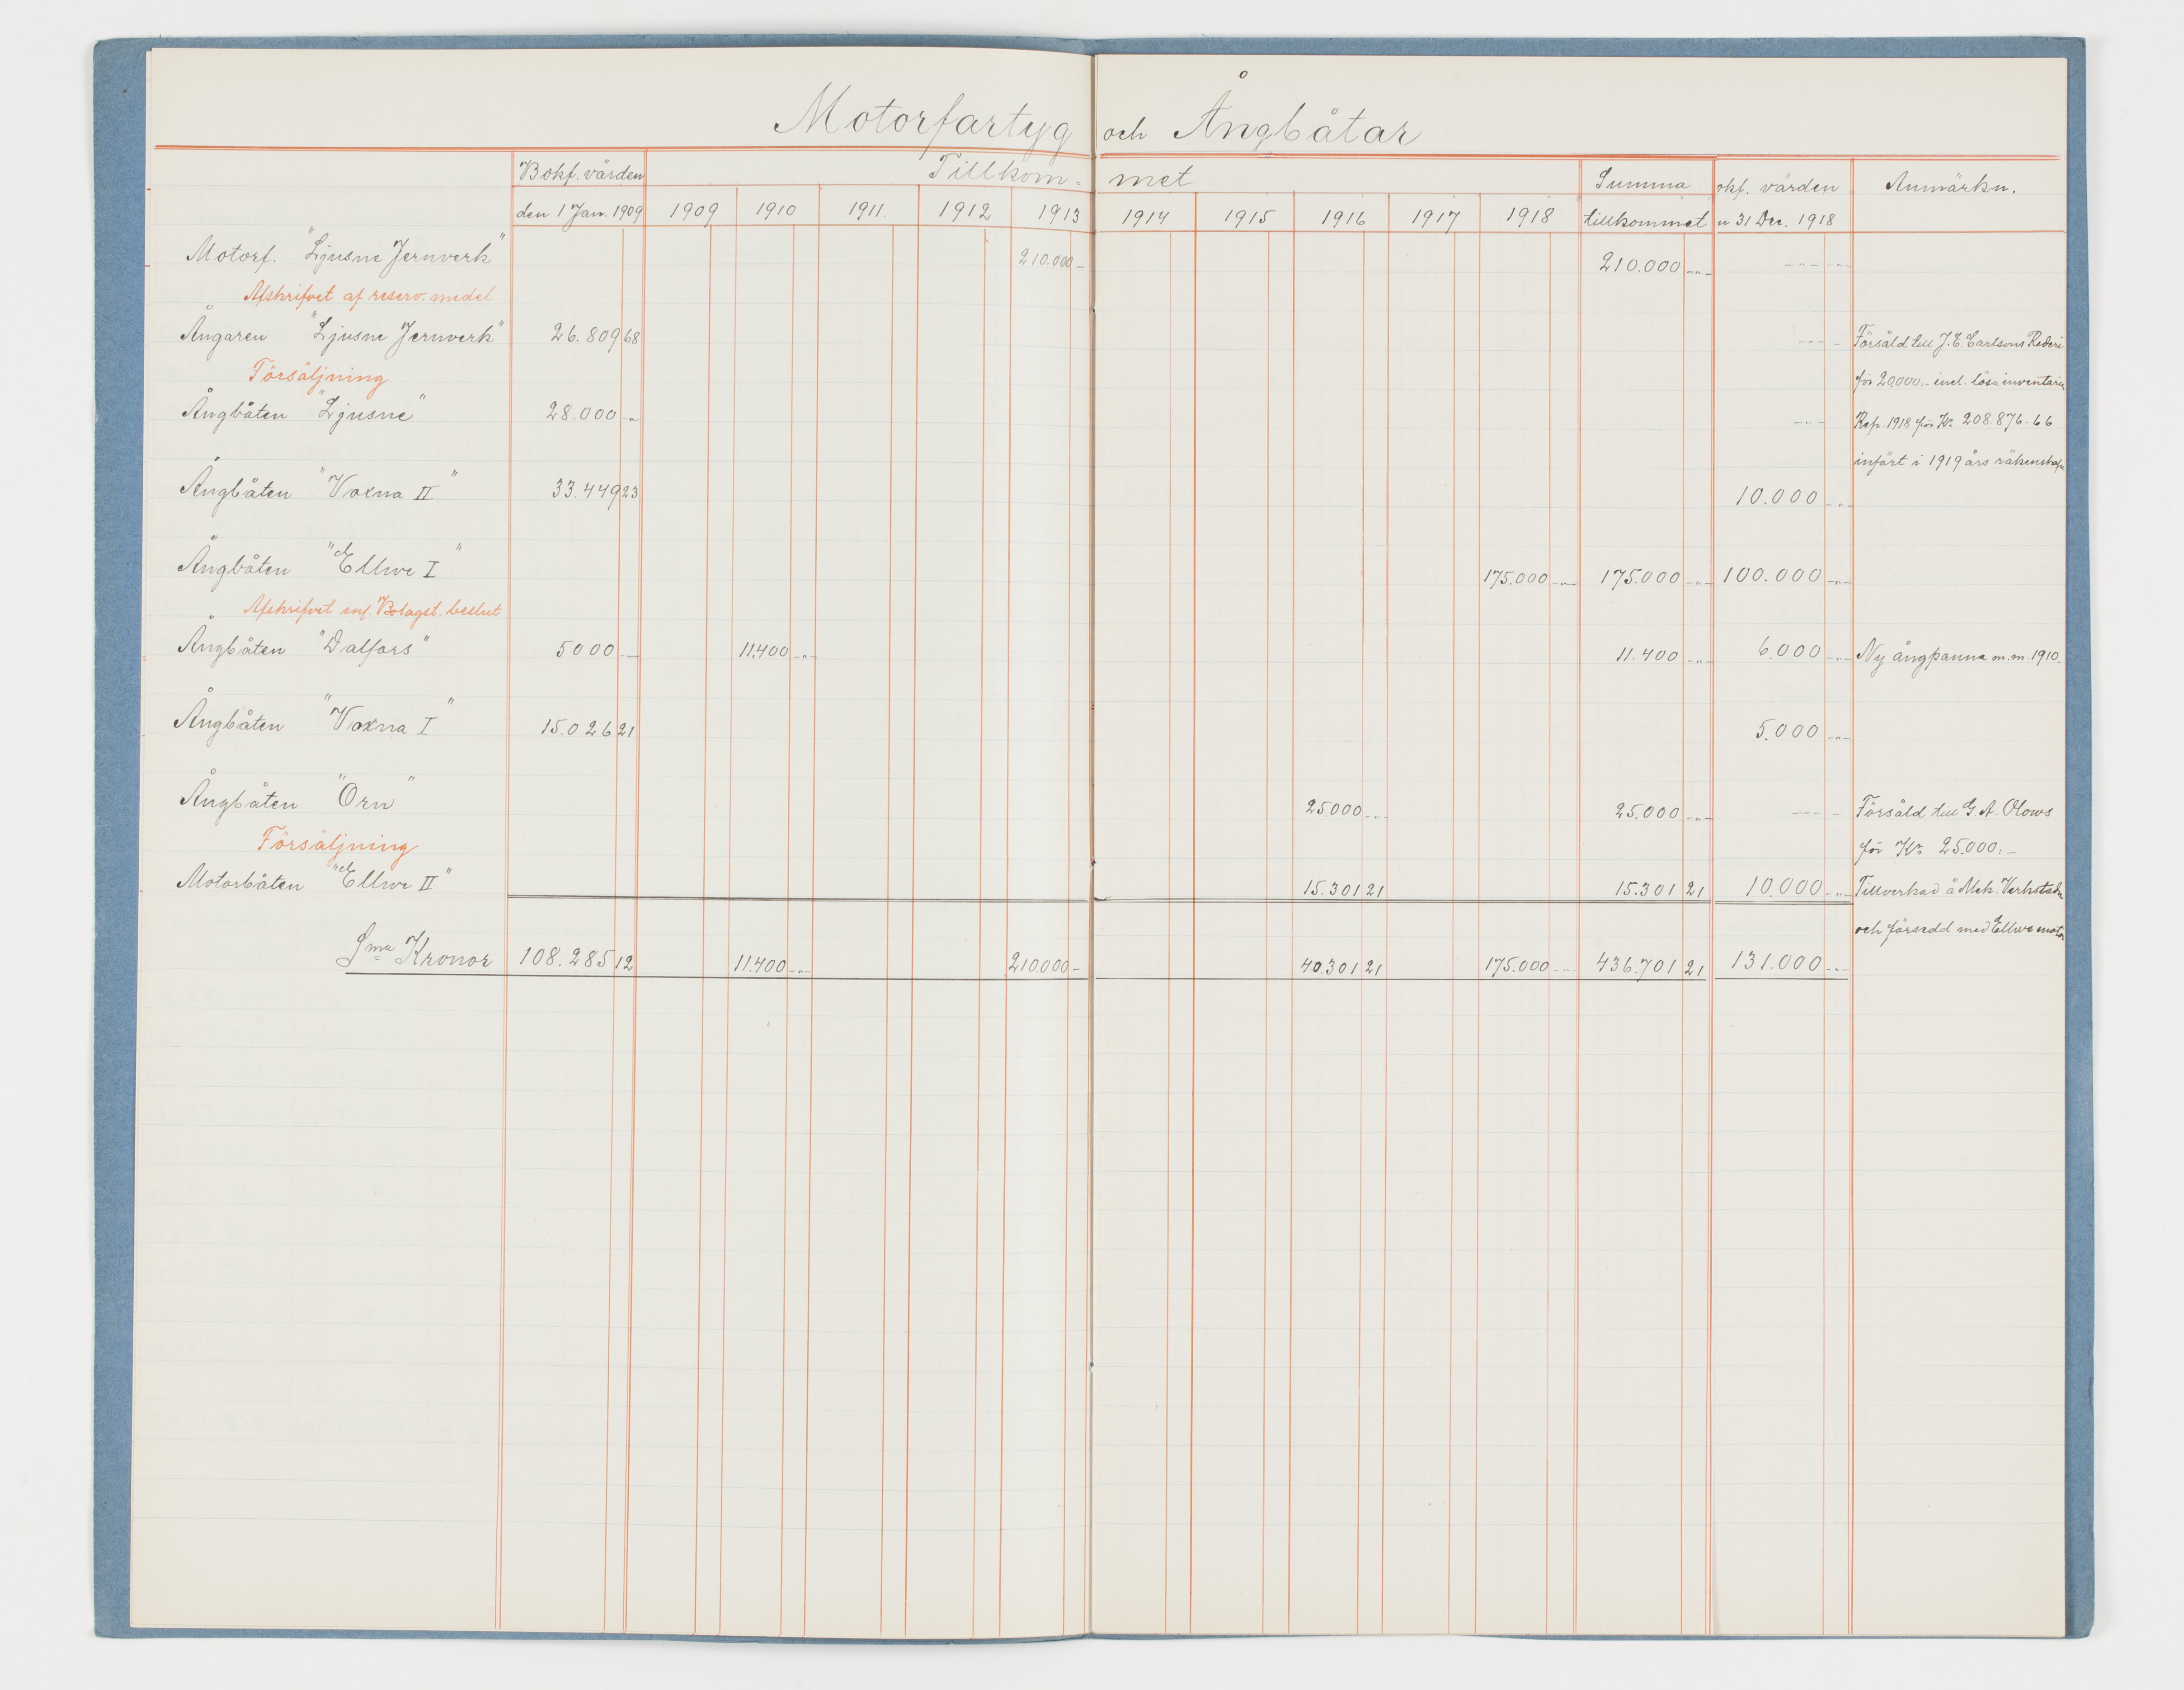 Motorfartyg och Ångbåtar
Bokf. värden Tillkom- met Summa okf. värden Anmärkn.
den 1 Jan. 1909 1909 1910 1911. 1912 1913 1914 1915 1916 1917 1918 tillkommet n 31 Dec. 1918
Motorf. "Ljusne Jernverk" 210.000 - 210.000 -"- -"- -"-
Afskrifvet af reserv. medel
Ångaren "Ljusne Jernverk" 26.809 68 -"- - Försåld till J. E. Carlsons Rederi
Försäljning för 20000.- incl. lösa inventarier
Ångbåten "Ljusne" 28.000 -"- -"- Rep. 1918 för Kr. 208.876.66
infört i 1919 års
Ångbåten "Voxna II" 33.449 23 10.000 -"-
Ångbåten "Ellwe I" 175.000 -"- 175.000 -"- 100.000 -"-
Afskrifvet enl Bolagst. beslut
Ångbåten "Dalfors" 5000 - 11.400 -"- 11.400 -"- 6.000 -"- Ny ångpanna m.m. 1910.
Ångbåten "Voxna I" 15.026 21 5.000 -"-
Ångbåten "Örn" 25.000 -"- 25.000 -"- -"- - Försåld till G. A. Olows
Försäljning för Kr. 25.000.-
Motorbåten "Ellwe II" 15.301 21 15.301 21 10.000 -"- Tillverkad å Mek. Verkstaden
och försedd med Ellwe motor
Sma Kronor 108.285 12 11.400 -"- 210.000 - 40.301 21 175.000 - 436.701 21 131.000 -"-